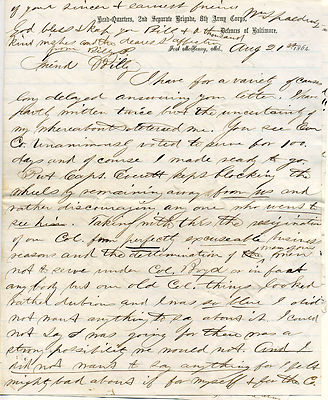 of your sincere & earnest friend
God bless & keep you Billy & a thousand
kind wishes and the dearest
from Billy
Head-Quarters, 2nd Separate Brigade, 8th Army Corps,
Defences of Baltimore.
Fort McHenry, Md., Aug 21st 1864
Friend Billy
I have for a variety of causes
long delayed answering your letter. I have
partly written twice but the uncertainty of
my whereabouts deterred me. You see our
Co. Unanimously voted to serve for 100
days and of course I made ready to go.
But Capt. Everett kept blocking the
wheels by remaining away from us and
rather discouraging any one who went to
see him. Taking with this the resignation
of our Col. from perfectly excuseable business
reasons and the determination of the men
not to serve under Col. Boyd or in fact
any body but our old Col. things looked
rather dubious and I was so blue I did
not want anything to say about it. I could
not say I was going for there was a
strong possibility we would not. And I
did not want to say anything for I felt
might bad about it for myself & for the C.